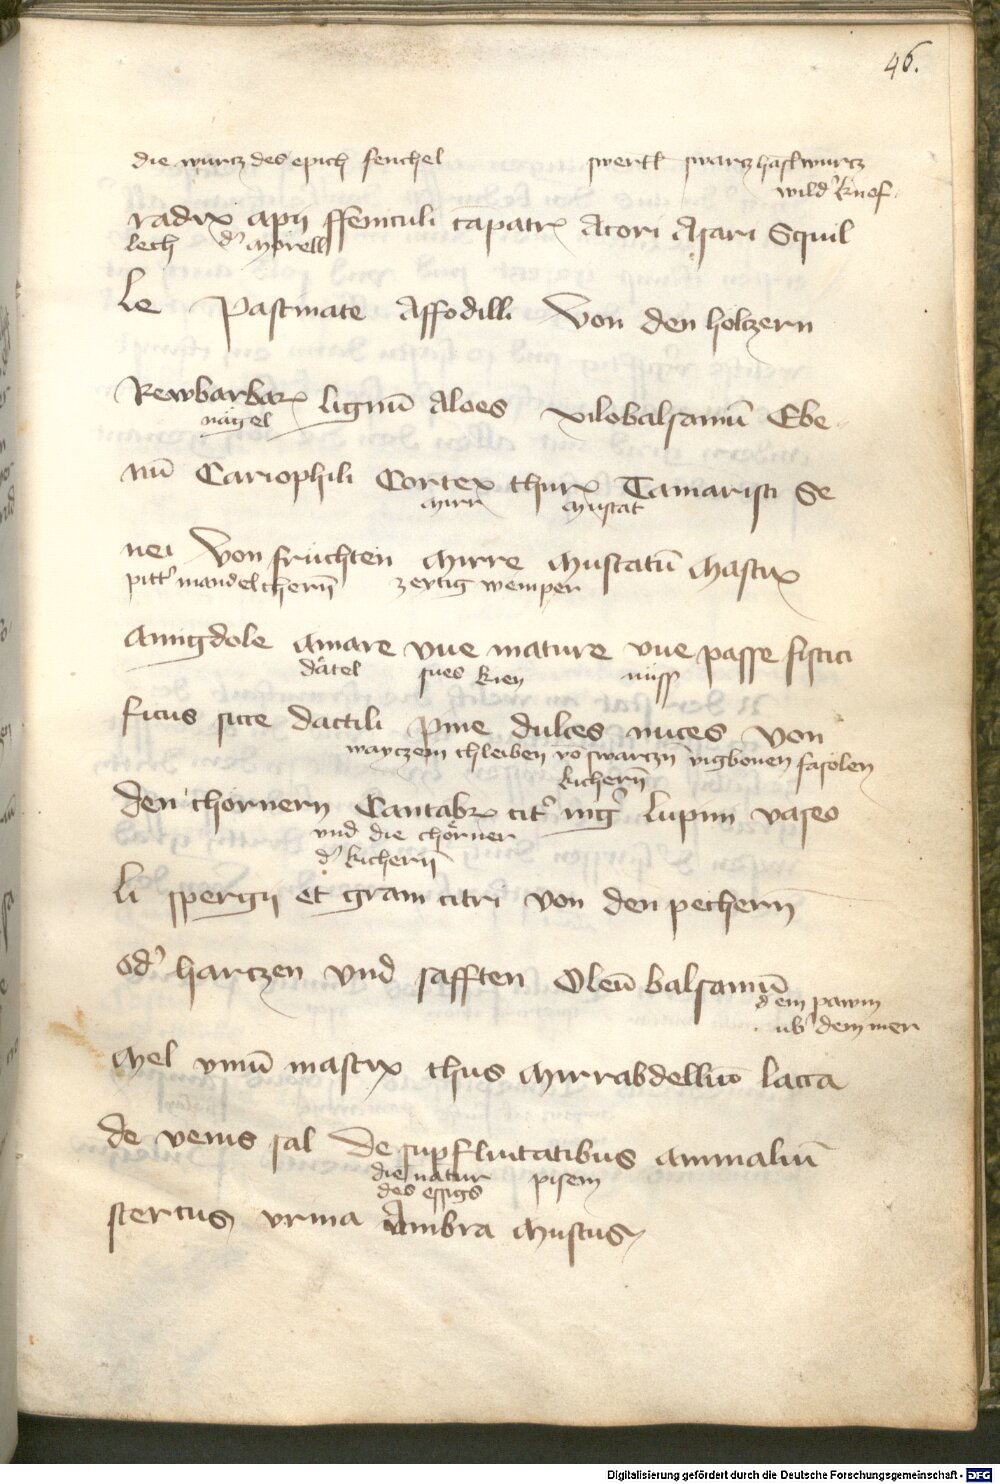 46.
die wurcz des epich fenchel swertl swarcz haslwurcz
wild' knof
radix apij ffeniculi capatr Acori Asari Squil
lech d' Morell
le Pastinate Affodilli Von den holczern
Rewbarbar lignū Aloes xilobalsamū Ebe
nagel
nū Cariophili Cortex thur Tamarisci Se
Mirr Muscat
nei Von fruchten Mirre Muscatū Mastix
pitt' mandelchern̄ zeytig wemper
Amigdole Amare vue mature vue passe fistici
dätel sues kien nüss
ficus sicce dactili pine dulces nuces Von
wayczem chleiben vō swarczn̄ vigbonen fasolen
kichern̄
den chornern Cantabr cit' nig' lupini vaseo
vnd die chörner
d' kichern̄
li spergij et grani citri von den pechern̄
Od' harczen vnd safften Oleū balsamū
d em pawm
ub' dem mer
Mel vinū mastix thus Mirrabdelliuo lacca
de venis sal De supfluitatibus animaliū
die natur pisem
des essigs
stercus vrina Ambra Muscus
Digitalisierung gefördert durch die Deutsche Forschungsgemeinschaft - DFG